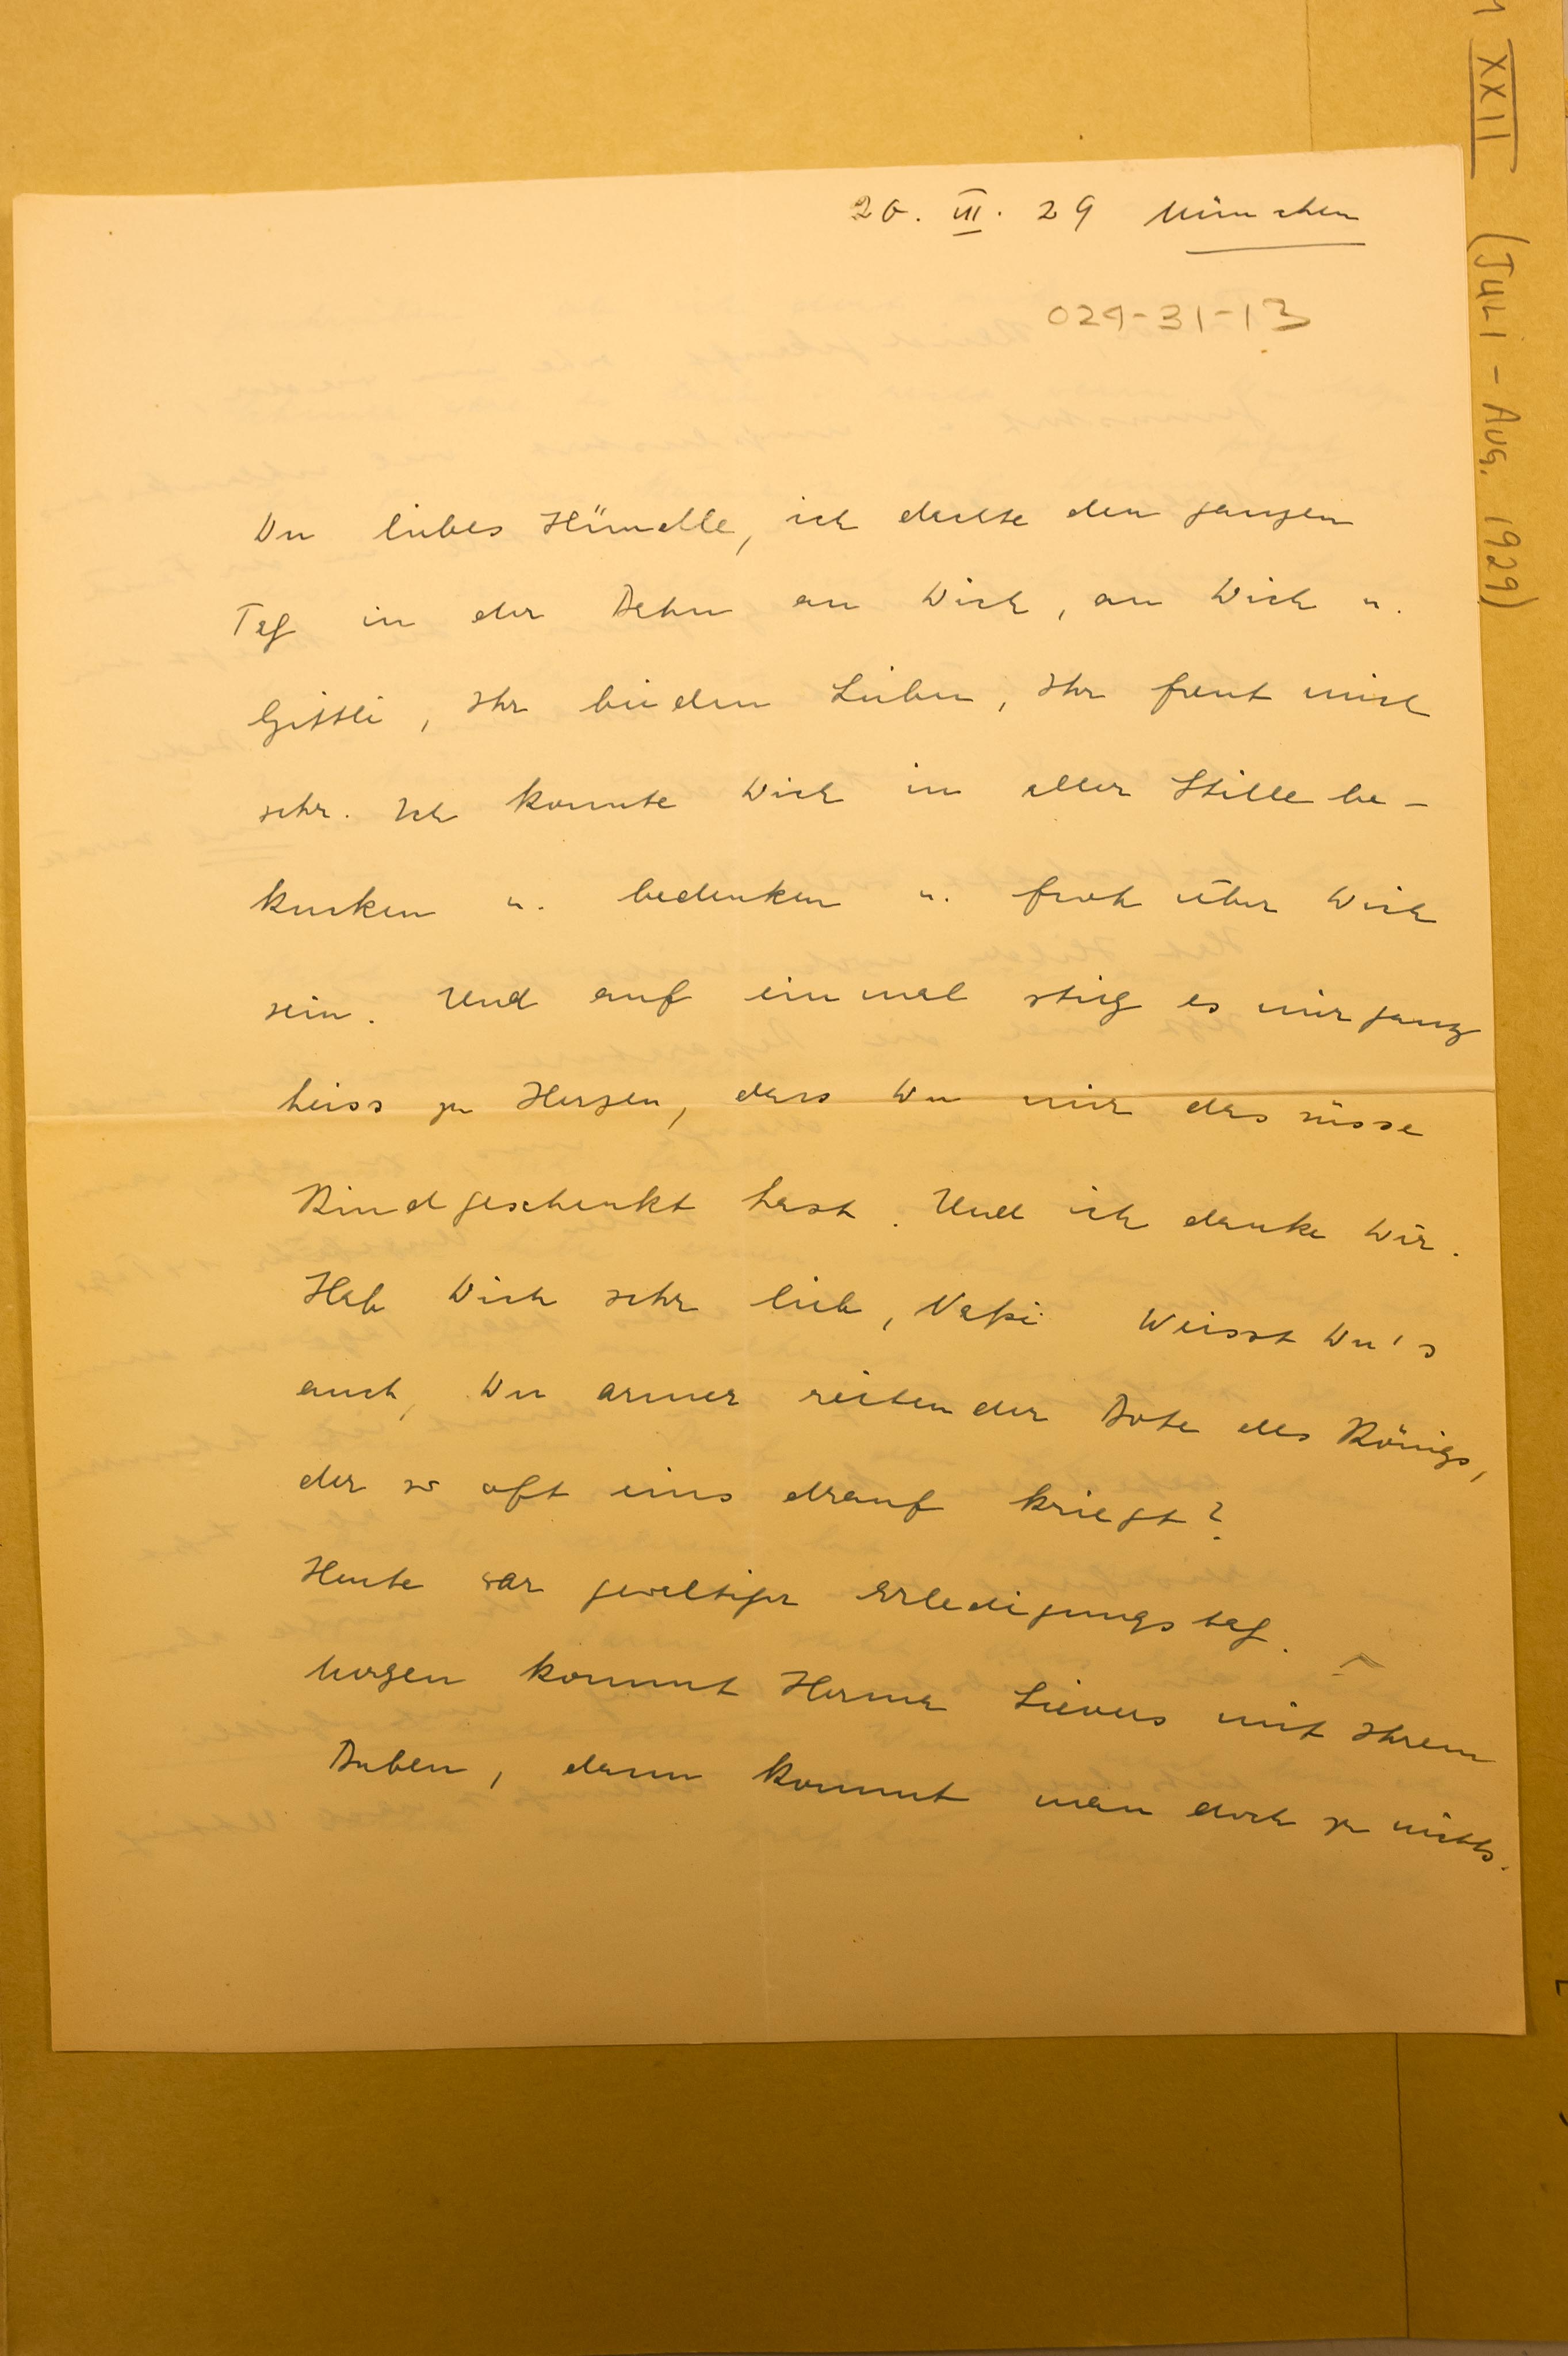 20. VII. 29 München
029-31-13
Du liebes Hündlle, ich dachte den ganzen
Tag in der Bahn an Dich, an Dich u.
Gittli, Ihr beiden Lieben, Ihr freut mich
sehr. Ich konnte Dich in aller Stille be-
kucken u. bedenken u. froh über Dich
sein. Und auf einmal stieg es mir ganz
heiss zu Herzen, dass Du mir das süsse
Kind geschenkt hast. Und ich danke Dir.
Hab Dich sehr lieb, Weisst Du's
auch, Du armer reitender Bote des Königs,
der so oft eins drauf kriegt?
Heute war gewaltiger Erledigungstag.
Morgen kommt Herma Lievers mit Ihrem
Buben, dann kommt man doch zu nichts.
XXII (JULI - AUG. 1929)